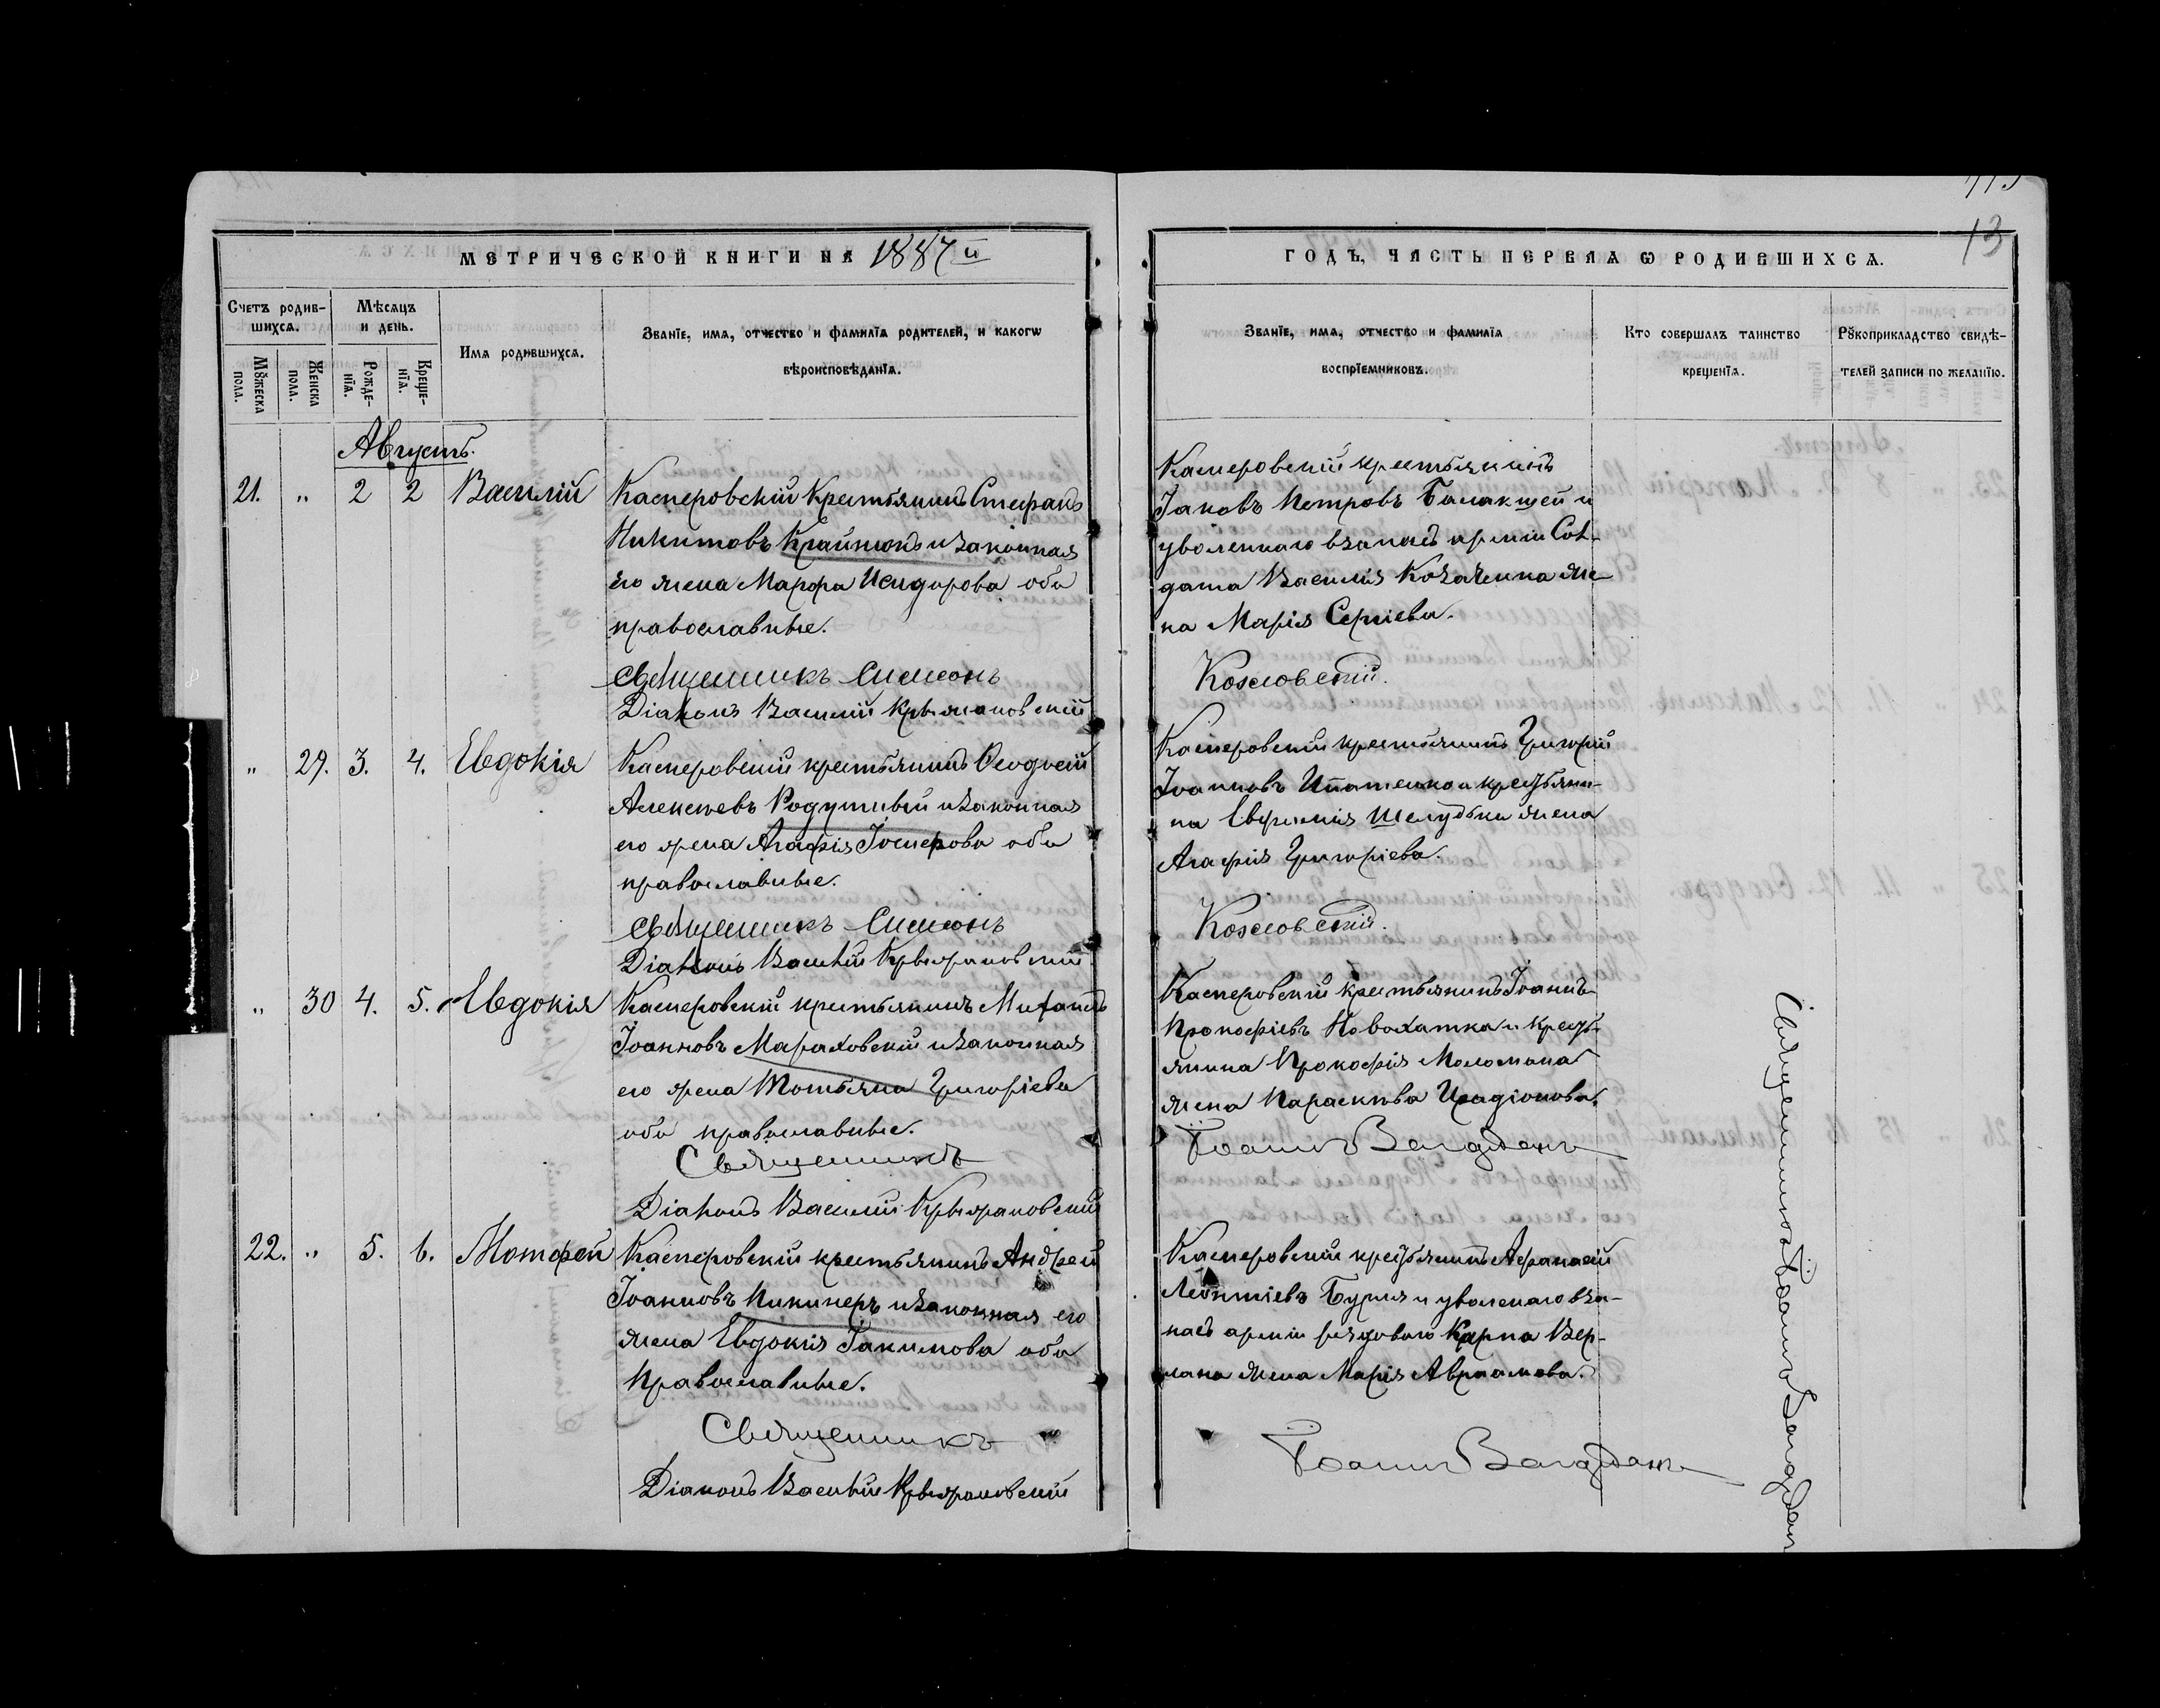 13
МЕТРИЧЕСКОЙ КНИГИ НА 1887й
ГОДЪ, ЧАСТЬ ПЕРВАЯ Ѡ РОДИВШИХСѦ.
Счетъ родив-
шихсѧ.
Мѣсѧцъ
и день.
Имѧ родившихсѧ.
Званїе, имѧ, отчество и фамилїѧ родителей, и какогѡ
вѣроисповѣданїѧ.
Мꙋжеска
пола.
Женска
пола.
Рожде-
нїѧ.
Креще-
нїѧ.
Званїе, имѧ, отчество и фамилїѧ
воспрїемниковъ.
Кто совершалъ таинство
крещенїѧ.
Рꙋкоприкладство свидѣ-
телей записи по желанїю.
Августъ.
21. " 2 2 Василій
Касперовскій Крестьянинъ Стефанъ
Никитовъ Крайнюкъ и законная
его жена Марфа Исидорова оба
православные.
Священникъ Симеонъ
Діаконъ Василій Крыжановскій
Касперовскій крестьянинъ
Іаковъ Петровъ Балакшей и
уволеннаго взапасъ арміи Сол-
дата Василія Козаченка же-
на Марія Сергіева.
Козловскій.
" 29. 3. 4. Евдокія
Касперовскій крестьянинъ Ѳеодосій
Алексѣевъ Родутный и законная
его жена Агафія Іосифова оба
православные.
Священникъ Симеонъ
Діаконъ Василій Крыжановскій
Касперовскій крестьянинъ Григорій
Іоанновъ Ипатенко и крестьяни-
на Евфимія Шелудька жена
Агафія Григоріева.
Козловскій.
" 30 4. 5. Евдокія
Касперовскій крестьянинъ Михаилъ
Іоанновъ Мараховскій и законная
его жена Татьяна Григоріева
оба православные.
Священникъ
Діаконъ Василій Крыжановскій
Касперовскій крестьянинъ Іоаннъ
Прокофіевъ Новохатка и крест-
янина Прокофія Моломана
жена Параскева Иродіонова.
Іоаннъ Вагдань
22. " 5. 6. Матфей
Касперовскій крестьянинъ Андрей
Іоанновъ Пикинеръ и законная его
жена Евдокія Іакимова оба
Православные.
Священникъ
Діаконъ Василій Крыжановскій
Касперовскій крестьянинъ Афанасій
Леонтіевъ Бурия и уволеннаго вза-
пасъ арміи рядового Карпа Вер-
лана жена Марія Авраамова.